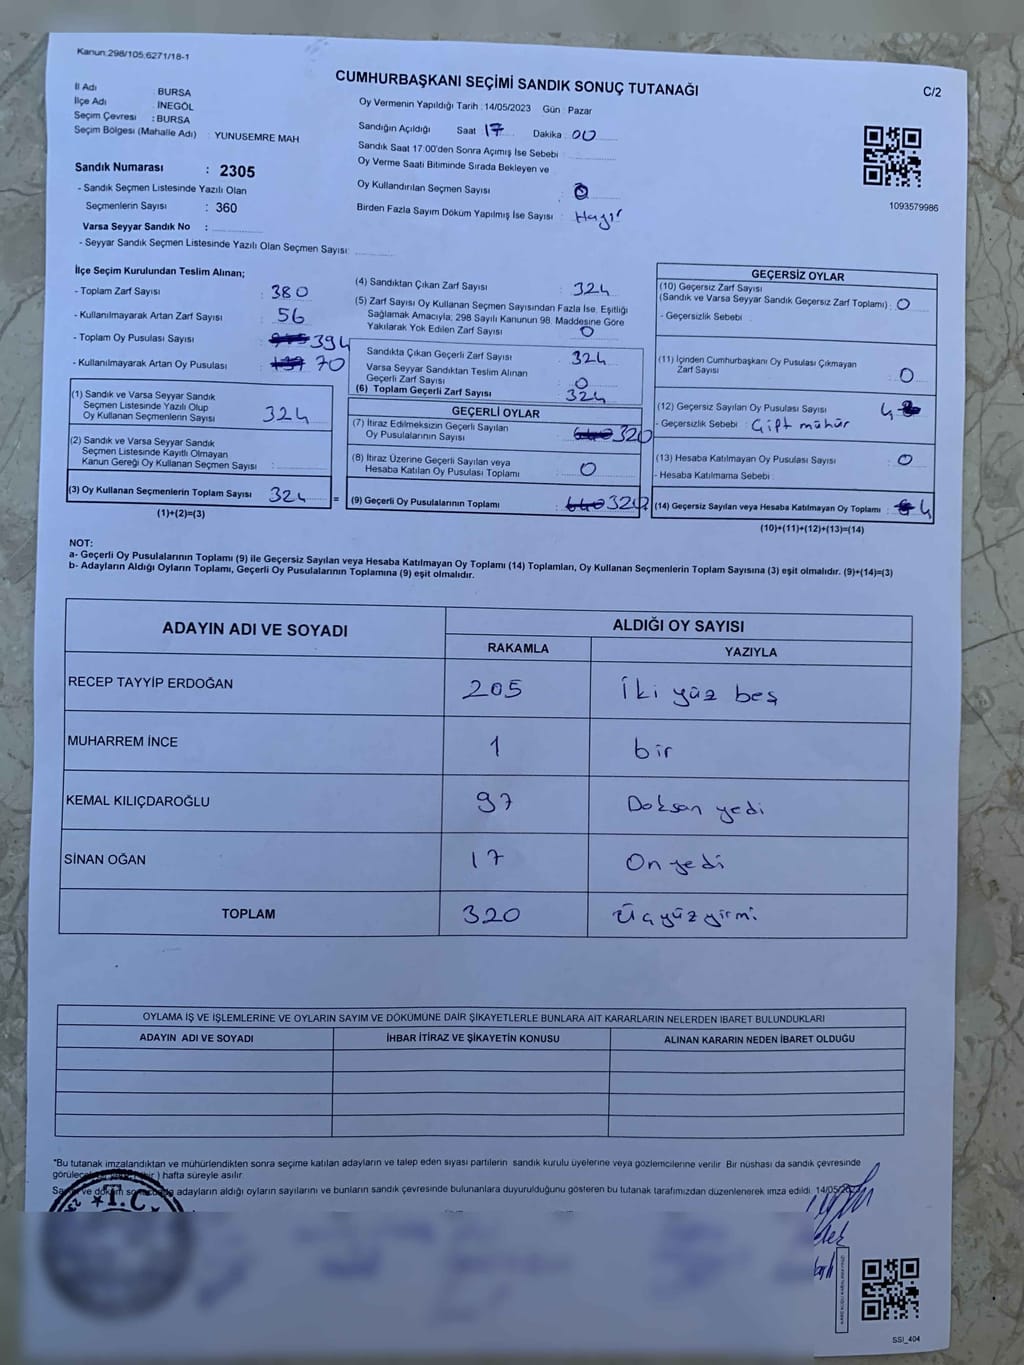 Kanun:298/105;6271/18-1
CUMHURBAŞKANI SEÇİMİ SANDIK SONUÇ TUTANAĞI
C/2
İl Adı : BURSA
İlçe Adı : İNEGÖL
Seçim Çevresi : BURSA
Seçim Bölgesi (Mahalle Adı) : YUNUSEMRE MAH
Sandık Numarası : 2305
- Sandık Seçmen Listesinde Yazılı Olan
Seçmenlerin Sayısı : 360
Varsa Seyyar Sandık No :
- Seyyar Sandık Seçmen Listesinde Yazılı Olan Seçmen Sayısı:
Oy Vermenin Yapıldığı Tarih : 14/05/2023 Gün : Pazar
Sandığın Açıldığı Saat 17 Dakika : 00
Sandık Saat 17:00'den Sonra Açımış İse Sebebi :
Oy Verme Saati Bitiminde Sırada Bekleyen ve
Oy Kullandırılan Seçmen Sayısı : 0
Birden Fazla Sayım Döküm Yapılmış İse Sayısı : Hayır
1093579986
İlçe Seçim Kurulundan Teslim Alınan;
- Toplam Zarf Sayısı : 380
- Kullanılmayarak Artan Zarf Sayısı : 56
- Toplam Oy Pusulası Sayısı : 394
- Kullanılmayarak Artan Oy Pusulası : 70
(1) Sandık ve Varsa Seyyar Sandık
Seçmen Listesinde Yazılı Olup
Oy Kullanan Seçmenlerin Sayısı : 324
(2) Sandık ve Varsa Seyyar Sandık
Seçmen Listesinde Kayıtlı Olmayan
Kanun Gereği Oy Kullanan Seçmen Sayısı :
(3) Oy Kullanan Seçmenlerin Toplam Sayısı : 324 =
(1)+(2)=(3)
(4) Sandıktan Çıkan Zarf Sayısı : 324
(5) Zarf Sayısı Oy Kullanan Seçmen Sayısından Fazla İse, Eşitliği
Sağlamak Amacıyla; 298 Sayılı Kanunun 98. Maddesine Göre
Yakılarak Yok Edilen Zarf Sayısı : 0
Sandıkta Çıkan Geçerli Zarf Sayısı : 324
Varsa Seyyar Sandıktan Teslim Alınan
Geçerli Zarf Sayısı : 0
(6) Toplam Geçerli Zarf Sayısı : 324
GEÇERLİ OYLAR
(7) İtiraz Edilmeksizin Geçerli Sayılan
Oy Pusulalarının Sayısı : 320
(8) İtiraz Üzerine Geçerli Sayılan veya
Hesaba Katılan Oy Pusulası Toplamı : 0
(9) Geçerli Oy Pusulalarının Toplamı :
GEÇERSİZ OYLAR
(10) Geçersiz Zarf Sayısı
(Sandık ve Varsa Seyyar Sandık Geçersiz Zarf Toplamı) : 0
- Geçersizlik Sebebi :
(11) İçinden Cumhurbaşkanı Oy Pusulası Çıkmayan
Zarf Sayısı : 0
(12) Geçersiz Sayılan Oy Pusulası Sayısı : 4
- Geçersizlik Sebebi : Çift mühür
(13) Hesaba Katılmayan Oy Pusulası Sayısı : 0
- Hesaba Katılmama Sebebi :
(14) Geçersiz Sayılan veya Hesaba Katılmayan Oy Toplamı : 4
(10)+(11)+(12)+(13)=(14)
NOT:
a- Geçerli Oy Pusulalarının Toplamı (9) ile Geçersiz Sayılan veya Hesaba Katılmayan Oy Toplamı (14) Toplamları, Oy Kullanan Seçmenlerin Toplam Sayısına (3) eşit olmalıdır. (9)+(14)=(3)
b- Adayların Aldığı Oyların Toplamı, Geçerli Oy Pusulalarının Toplamına (9) eşit olmalıdır.
ADAYIN ADI VE SOYADI ALDIĞI OY SAYISI
RAKAMLA YAZIYLA
RECEP TAYYİP ERDOĞAN 205 İki yüz beş
MUHARREM İNCE 1 bir
KEMAL KILIÇDAROĞLU 97 Doksan yedi
SİNAN OĞAN 17 On yedi
TOPLAM 320 Üçyüzyirmi
OYLAMA İŞ VE İŞLEMLERİNE VE OYLARIN SAYIM VE DÖKÜMÜNE DAİR ŞİKAYETLERLE BUNLARA AİT KARARLARIN NELERDEN İBARET BULUNDUKLARI
ADAYIN ADI VE SOYADI İHBAR İTİRAZ VE ŞİKAYETİN KONUSU ALINAN KARARIN NEDEN İBARET OLDUĞU
*Bu tutanak imzalandıktan ve mühürlendikten sonra seçime katılan adayların ve talep eden siyasi partilerin sandık kurulu üyelerine veya gözlemcilerine verilir. Bir nüshası da sandık çevresinde
hafta süreyle asılır.
adayların aldığı oyların sayılarını ve bunların sandık çevresinde bulunanlara duyurulduğunu gösteren bu tutanak tarafımızdan düzenlenerek imza edildi.
T.C
SSI_404